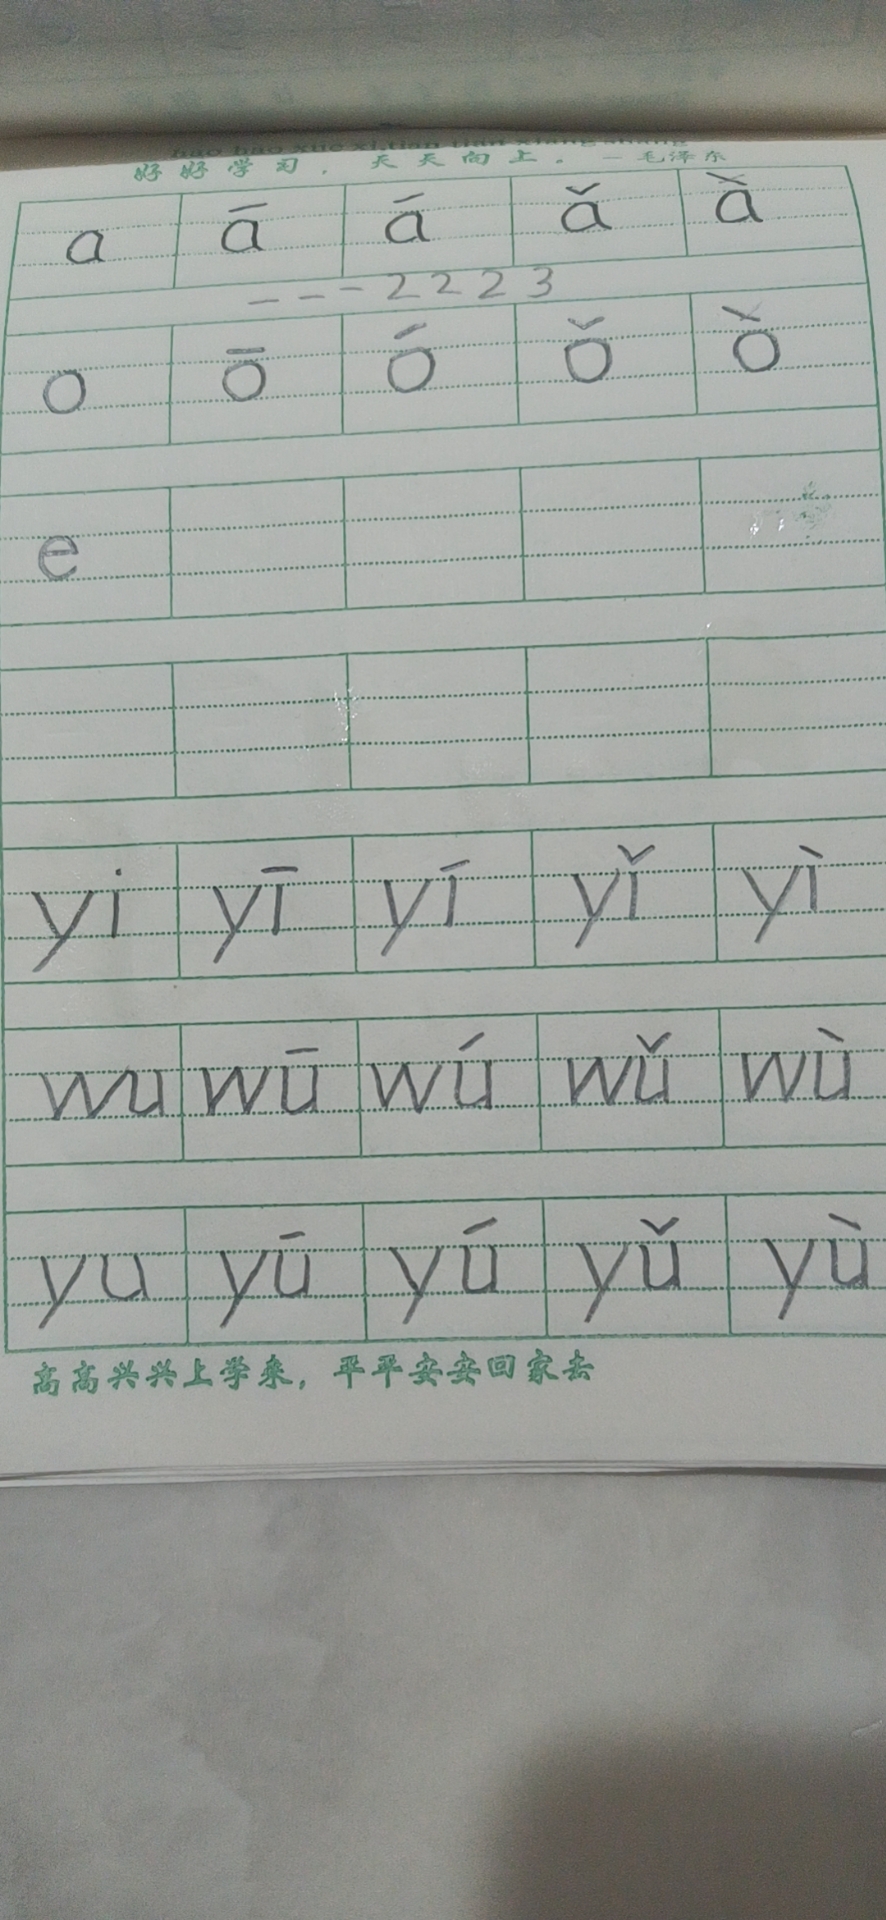 hao hao xue xi, tian tian xiang shang
好好学习,天天向上。—毛泽东
a ā á ǎ à
- - - 2 2 2 3
o ō ó ǒ ò
e
yi yī yí yǐ yì
wu wū wú wǔ wù
yu yū yú yǔ yù
高高兴兴上学来,平平安安回家去